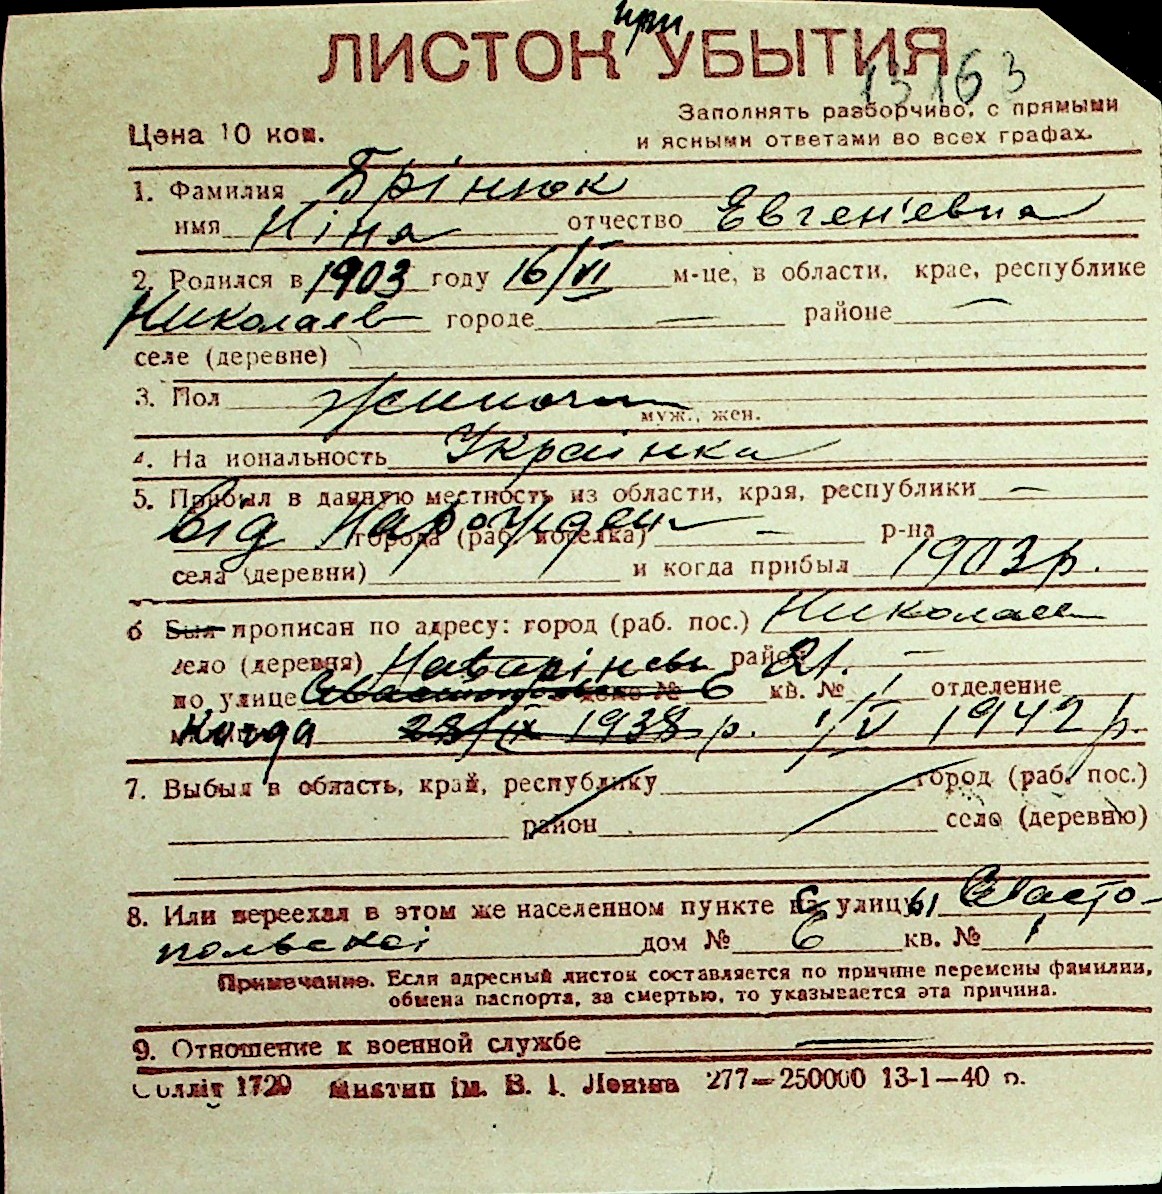 при
ЛИСТОК УБЫТИЯ
13163
Заполнять разборчиво, с прямыми
Цена 10 коп. и ясными ответами во всех графах.
1. Фамилия Брінюк
имя Ніна отчество Евген'евна
2. Родился в 1903 году 16/VI м-це, в области, крае, республике
Николаев городе — районе —
селе (деревне)
3. Пол
муж., жен.
4. На иональность Украінка
5. Прибыл в данную местность из области, края, республики —
від народжен
города (раб. поселка) — р-на
села (деревни) и когда прибыл 1903 р.
6 Был прописан по адресу: город (раб. пос.) Николаев
село (деревня) Наварінськ район 21. —
по улице Севастопольск дом № 6 кв. № 1 отделение
Когда 28/IX 1938 р. 1/V 1942 р.
7. Выбыл в область, край, республику город (раб. пос.)
район село (деревню)
8. Или переехал в этом же населенном пункте на улицу Севасто-
польскоі дом № 6 кв. № 1
Примечание. Если адресный листок составляется по причине перемены фамилии,
обмена паспорта, за смертью, то указывается эта причина.
9. Отношение к военной службе —
Облліт 1729 Миктип ім. В. І. Леніна 277—250000 13-1—40 р.